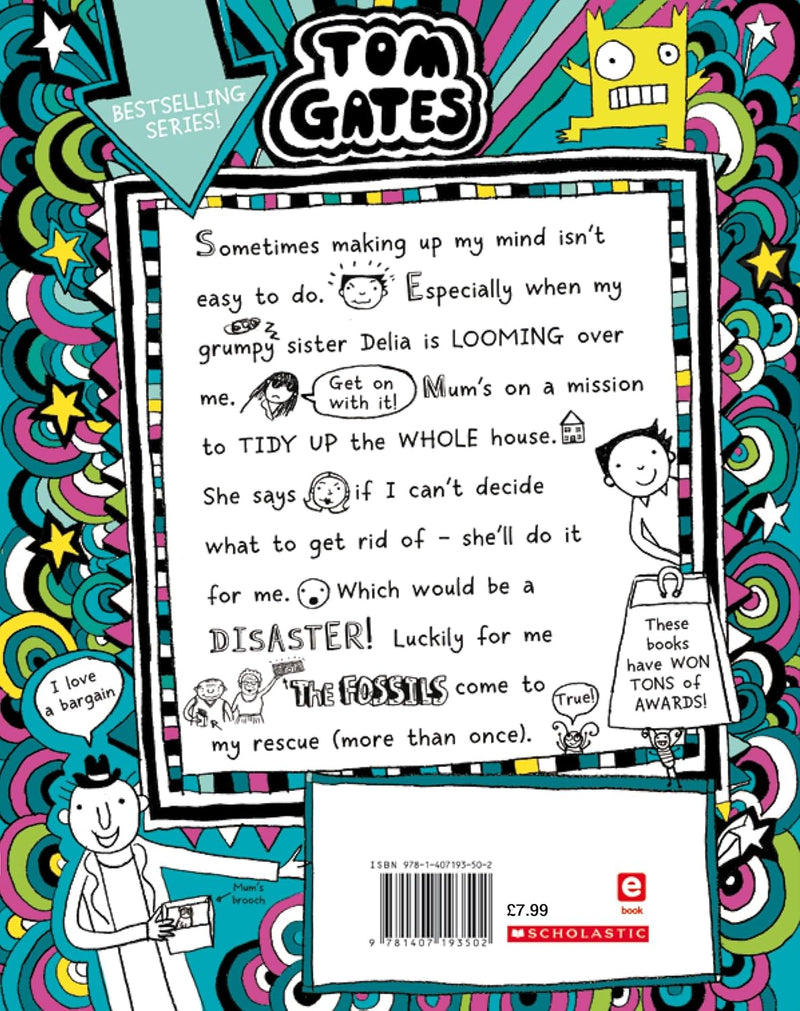 BESTSELLING
SERIES!
TOM
GATES
Sometimes making up my mind isn't
easy to do. Especially when my
grumpy sister Delia is LOOMING over
me. Get on
with it! Mum's on a mission
to TIDY UP the WHOLE house.
She says if I can't decide
what to get rid of – she'll do it
for me. Which would be a
DISASTER! Luckily for me
THE FOSSILS come to
my rescue (more than once).
True!
These
books
have WON
TONS of
AWARDS!
I love
a bargain
Mum's
brooch
ISBN 978-1-407193-50-2
9 781407 193502
£7.99
e
book
SCHOLASTIC